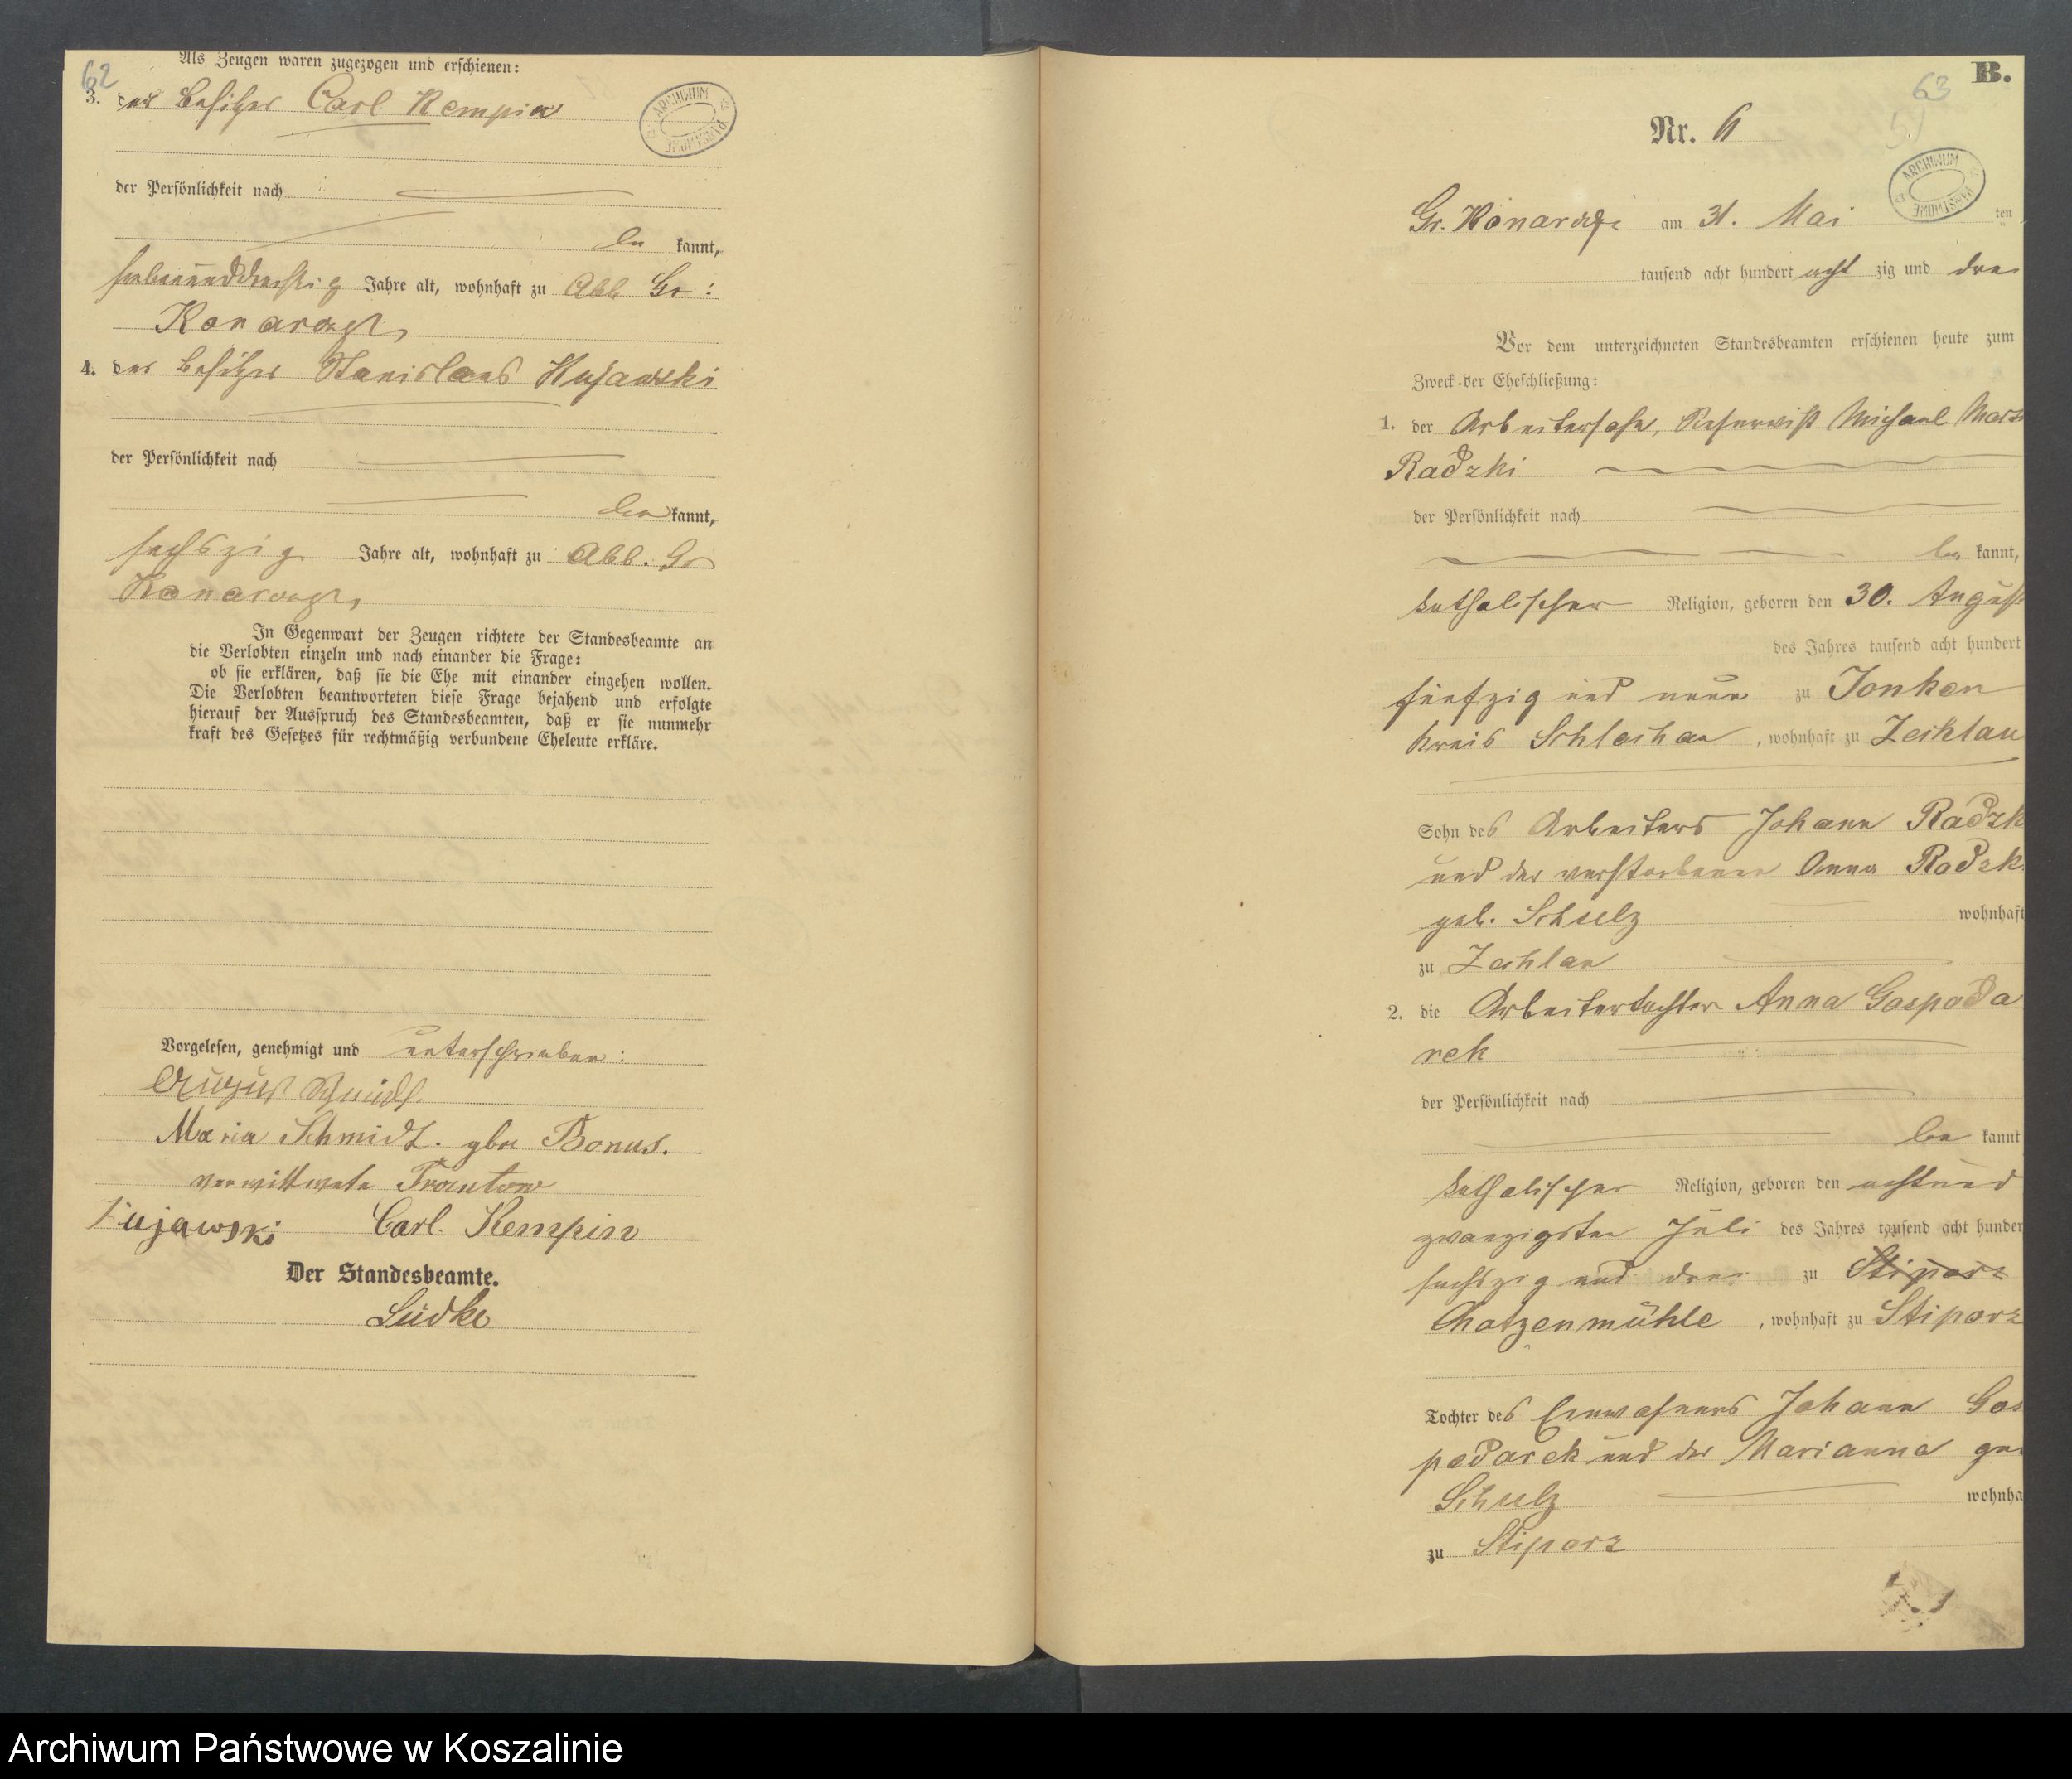 62
Als Zeugen waren zugezogen und erschienen:
3. der Besitzer Carl Kempin
ARCHIWUM PAŃSTWOWE
der Persönlichkeit nach
be kannt,
siebenunddreißig Jahre alt, wohnhaft zu Abb Gr:
Konarczyn
4. der Besitzer Stanislaus Kujawski
der Persönlichkeit nach
be kannt,
sechszig Jahre alt, wohnhaft zu Abb. Gr
Konarczyn
In Gegenwart der Zeugen richtete der Standesbeamte an
die Verlobten einzeln und nach einander die Frage:
ob sie erklären, daß sie die Ehe mit einander eingehen wollen.
Die Verlobten beantworteten diese Frage bejahend und erfolgte
hierauf der Ausspruch des Standesbeamten, daß er sie nunmehr
kraft des Gesetzes für rechtmäßig verbundene Eheleute erkläre.
Vorgelesen, genehmigt und unterschrieben:
August Schmidt.
Maria Schmidt. gbn Bonus.
verwittwete Trantow
Kujawski Carl. Kempin
Der Standesbeamte.
Lüdke
63
B.
Nr. 6
ARCHIWUM PAŃSTWOWE
Gr. Konarczyn am 31. Mai ten
tausend acht hundert acht zig und drei
Vor dem unterzeichneten Standesbeamten erschienen heute zum
Zweck der Eheschließung:
1. der Arbeitersohn, Reservist Michael
Radzki
der Persönlichkeit nach
be kannt,
katholischer Religion, geboren den 30. August
des Jahres tausend acht hundert
fünfzig und neun zu Jonken
Kreis Schlochau, wohnhaft zu Zechlau
Sohn des Arbeiters Johann Radzk
und der verstorbenen Anna Radzk
geb. Schulz wohnhaft
zu Zechlau
2. die Arbeitertochter Anna Gospoda
rek
der Persönlichkeit nach
be kannt
katholischer Religion, geboren den achtund
zwanzigsten Juli des Jahres tausend acht hunder
sechszig und drei zu Stiporz
Chotzenmühle, wohnhaft zu Stiporz
Tochter des Einwohners Johann Gos
podarek und der Marianna ge
Schulz wohnha
zu Stiporz
Archiwum Państwowe w Koszalinie